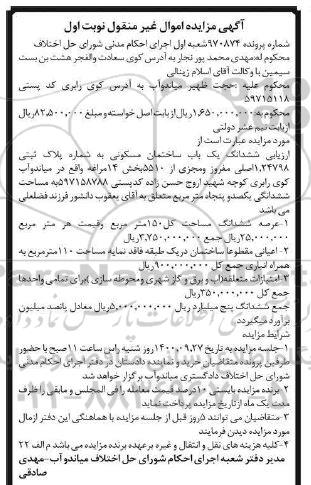 آگهی مزایده اموال غیر منقول نوبت اول
شماره پرونده ۹۷۰۸۷۴شعبه اول اجرای احکام مدنی شورای حل اختلاف
محکوم له:مهدی محمد پور نجار به آدرس کوی سعادت والفجر هشت بن بست
سیمین با وکالت آقای اسلام زینالی
محکوم علیه :حجت ظهیر میاندوآب به آدرس کوی رابری کد پستی
۵۹۷۱۵۱۱۸
محکوم به :۱,۶۵۰,۰۰۰,۰۰۰ریال از بابت اصل خواسته و مبلغ ۸۲,۵۰۰,۰۰۰ریال
از بابت نیم عشر دولتی
مورد مزایده عبارت است از
ارزیابی ششدانگ یک باب ساختمان مسکونی به شماره پلاک ثبتی
۱,۲۴۷۹۸اصلی مفروز ومجزی از ۵۵۱۰بخش ۱۴مراغه واقع در میاندوآب
کوی رابری کوچه شهید اروج حسن زاده کدپستی ۵۹۷۱۵۸۷۸۸به مساحت
ششدانگی یکصدو پنجاه متر مربع متعلق به آقای یعقوب دانشور فرزند فضلعلی
می باشد
۱-عرصه ششدانگ مساحت کل۱۵۰متر مربع وقیمت هر متر مربع
۲۵,۰۰۰,۰۰۰ریال جمع ۳,۷۵۰,۰۰۰,۰۰۰ریال
۲- اعیانی مقطوعا ساختمان در یک طبقه فاقد نمابه مساحت ۱۱۰مترمربع به
همراه انباری جمع کل ۹۰۰,۰۰۰,۰۰۰ریال
۳-امتیازات متعلقه:آب و برق و گاز شهری ومحوطه سازی (برای تمامی واحدها
جمع کل ۳۵۰,۰۰۰,۰۰۰ریال
جمع ششدانگ پنج میلیارد ریال ۵,۰۰۰,۰۰۰,۰۰۰ریال معادل پانصد میلیون
برآورد میگردد
شرایط مزایده
۱- جلسه مزایده به تاریخ ۱۴۰۰,۰۹,۲۷روز شنبه راس ساعت ۱۱صبح با حضور
طرفین پرونده متقاضیان خرید و نماینده دادستان در دفتر اجرای احکام مدنی
شورای حل اختلاف دادگستری میاندوآب برگزار خواهد شد
۲-برنده مزایده بایستی ۱۰درصد قیمت معامله را فی المجلس و مابقی را ظرف
مدت یک ماه از تاریخ مزایده پرداخت نماید
۳-متقاضیان می توانند ۵روز قبل از جلسه مزایده با هماهنگی این دفتر از مال
مورد مزایده دیدن فرمایند
۴-کلیه هزینه های نقل و انتقال و غیره بر عهده برنده مزایده می باشد م الف ۲۲
مدیر دفتر شعبه اجرای احکام شورای حل اختلاف میاندوآب-مهدی
صادقی